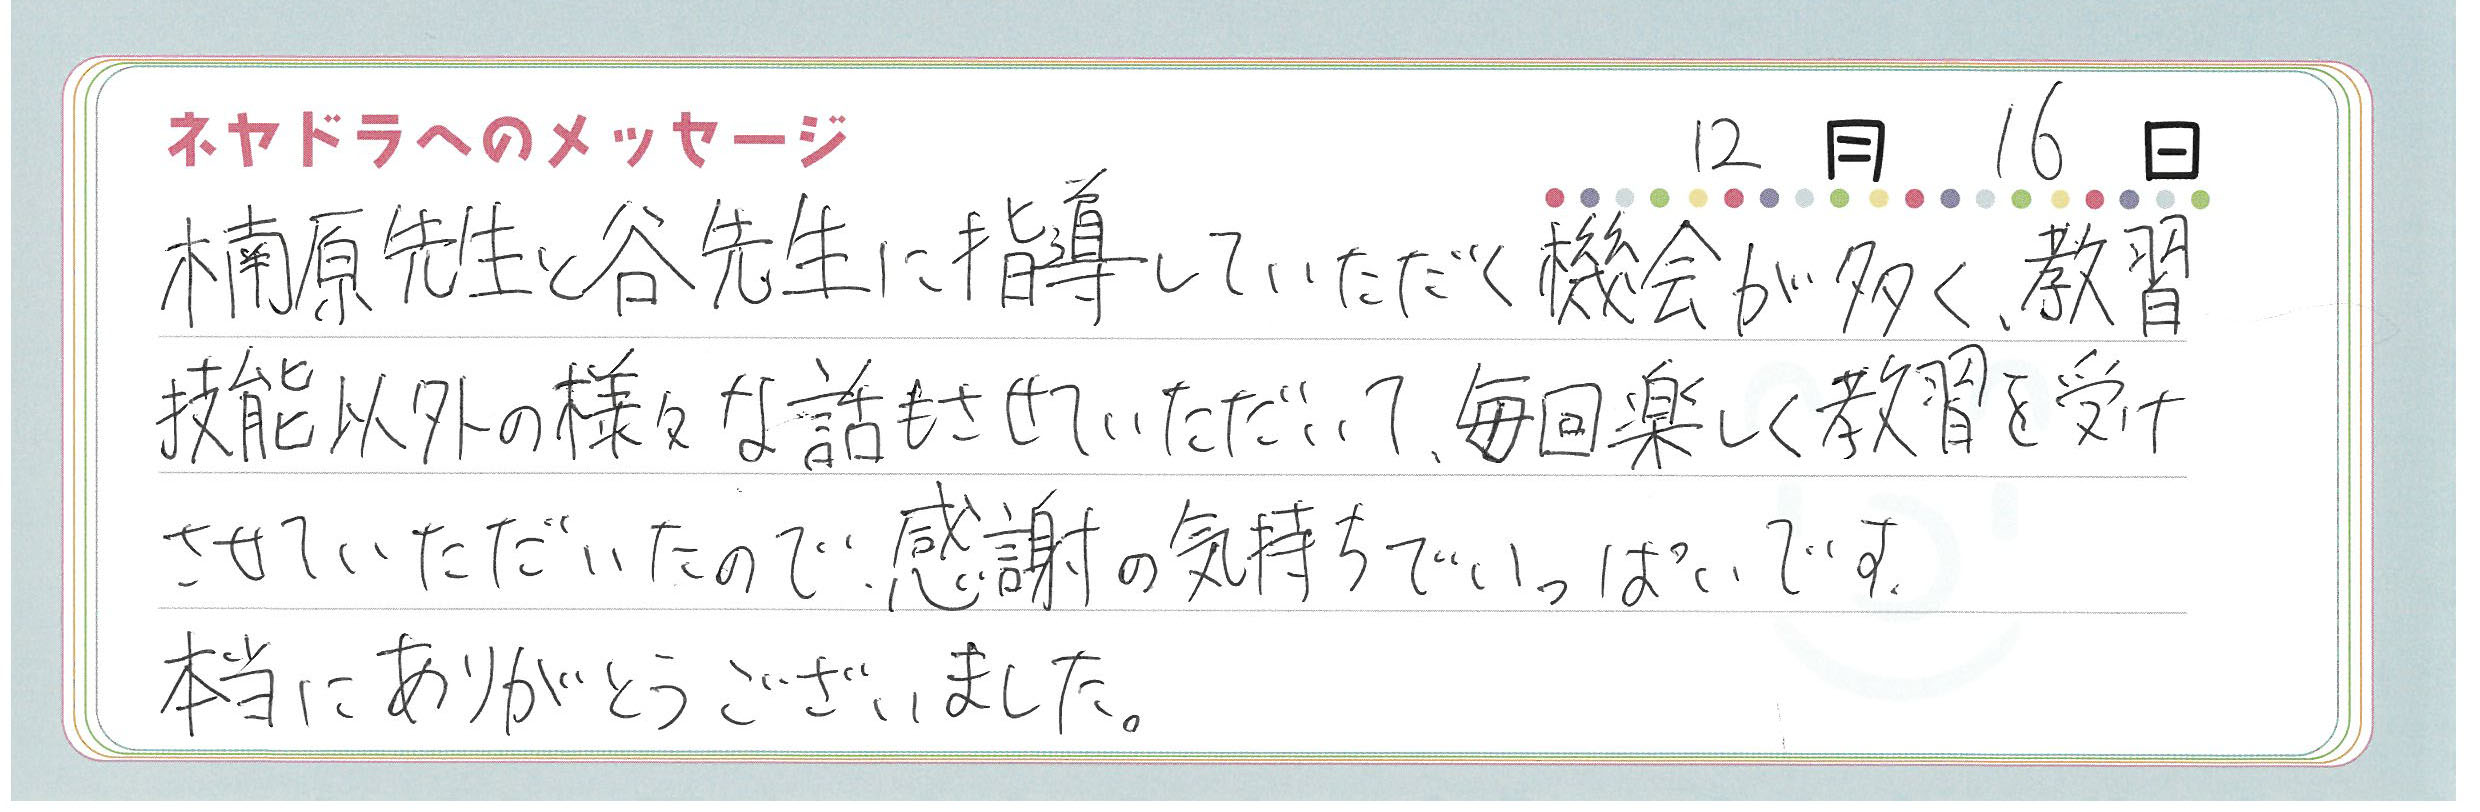 ネヤドラへのメッセージ
12月 16日
楠原先生と谷先生に指導していただく機会が多く、教習
技能以外の様々な話もさせていただいて、毎回楽しく教習を受け
させていただいたので、感謝の気持ちでいっぱいです。
本当にありがとうございました。